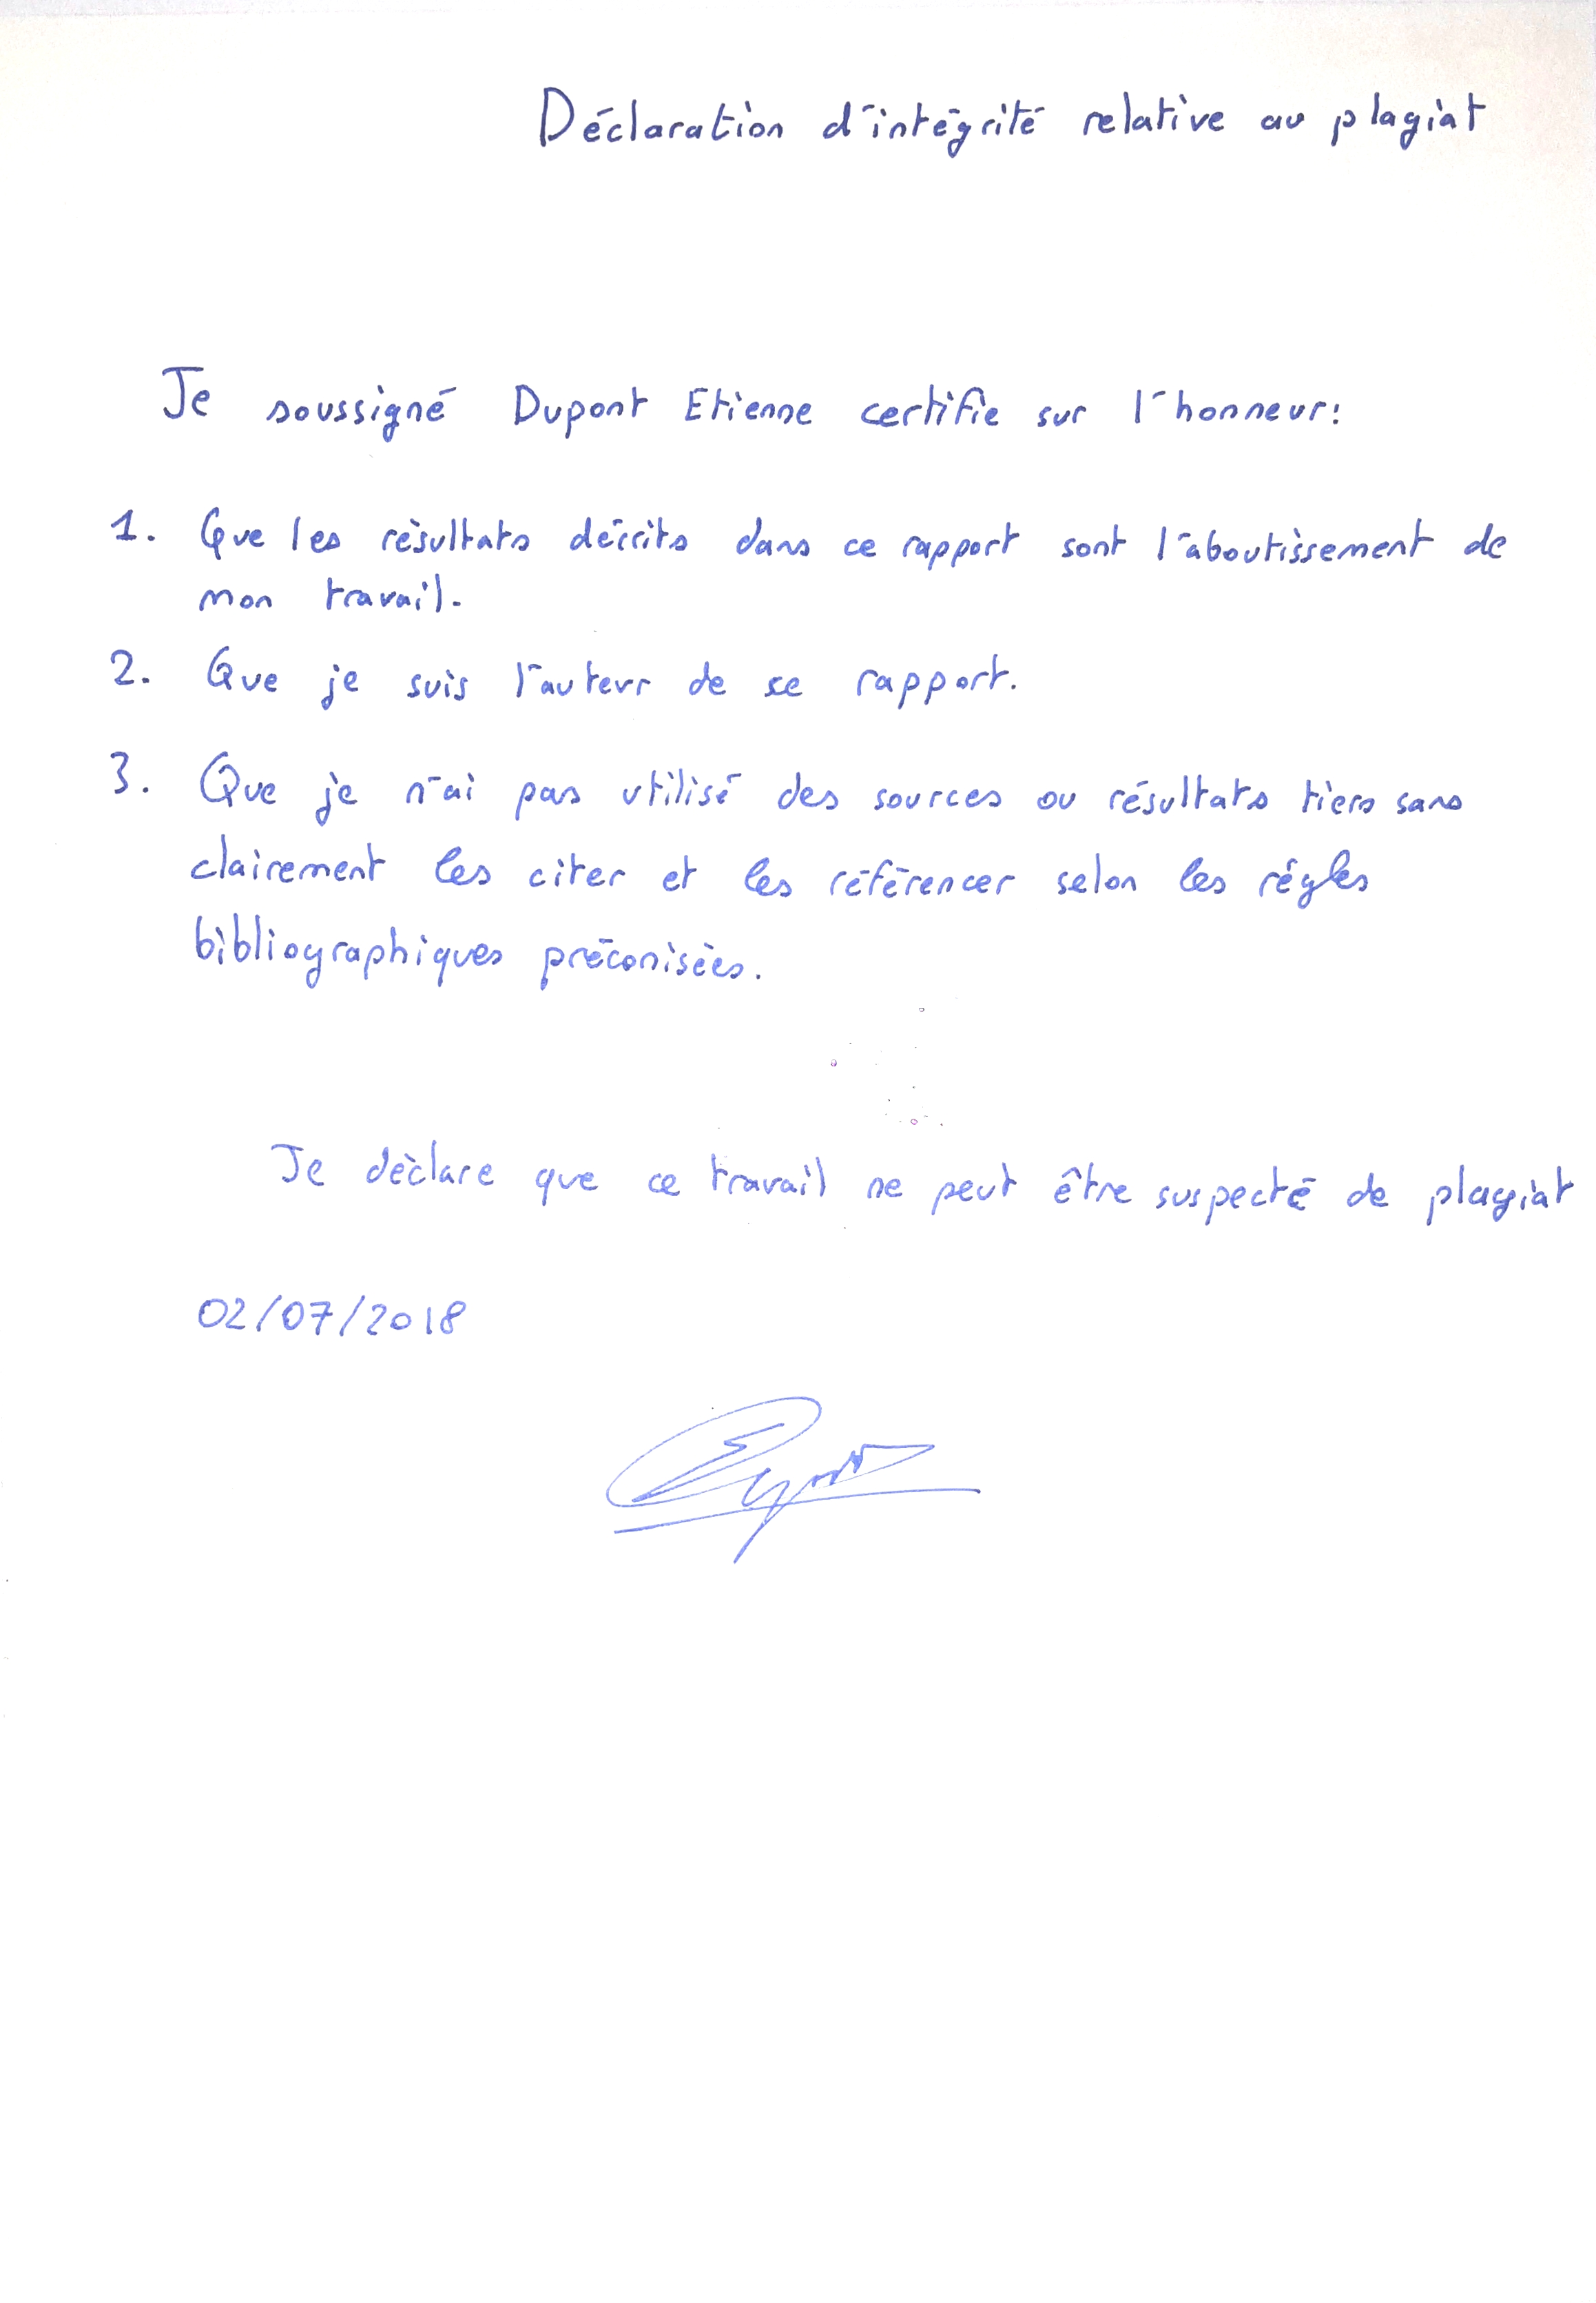 Déclaration d'intégrité relative au plagiat
Je soussigné Dupont Etienne certifie sur l'honneur:
1. Que les résultats décrits dans ce rapport sont l'aboutissement de
mon travail.
2. Que je suis l'auteur de se rapport.
3. Que je n'ai pas utilisé des sources ou résultats tiers sans
clairement les citer et les référencer selon les régles
bibliographiques préconisées.
Je déclare que ce travail ne peut être suspecté de plagiat
02/07/2018